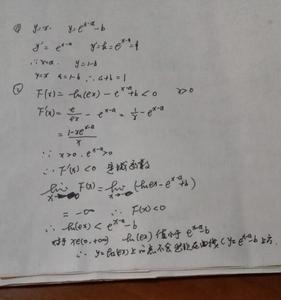 ① y=x. y=e^{x-a}-b
y'=e^{x-a} y'=k=e^{x-a}=1
∴x=a. y=1-b
y=x a=1-b ∴a+b=1
② F(x)=ln(ex)-e^{x-a}+b<0 x>0
F'(x)=e/ex-e^{x-a}=1/x-e^{x-a}
=(1-xe^{x-a})/x
∵x>0. e^{x-a}>0
∴F'(x)<0 是减函数
lim F(x)=lim(ln ex-e^{x-a}+b)
=-∞ ∴F(x)<0
∴ln(ex)<e^{x-a}-b
对于x∈(0,+∞) ln(ex)值小于e^{x-a}-b
∴y=ln(ex)上的点不会出现在曲线(y=e^{x-a}-b上方.